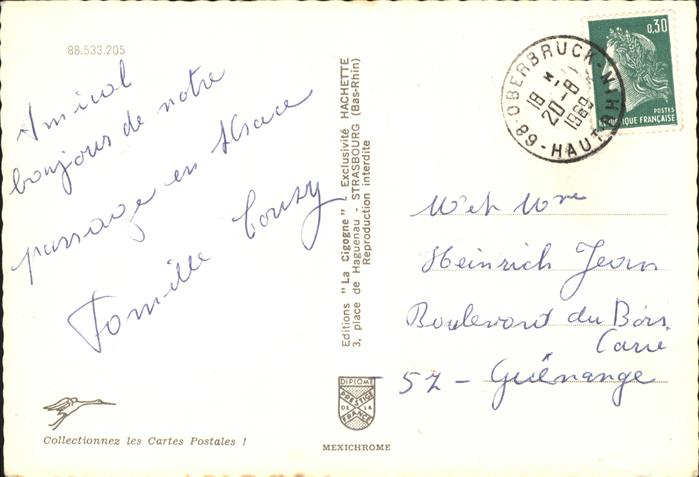 88.533.205
Amical
bonjour de notre
passage en Alsace
Famille
Collectionnez les Cartes Postales !
Editions "La Cigogne" Exclusivité HACHETTE
3, place de Haguenau - STRASBOURG (Bas-Rhin)
Reproduction interdite
DIPLOME
PRESTIGE
DE LA
FRANCE
MEXICHROME
OBERBRUCK-NI
18 H
20-8
1969
HAUT-RHIN
0,30
POSTES
REPUBLIQUE FRANÇAISE
Mr et Mme
Heinrich Jean
Boulevard du Bois
Carré
57 - Guénange